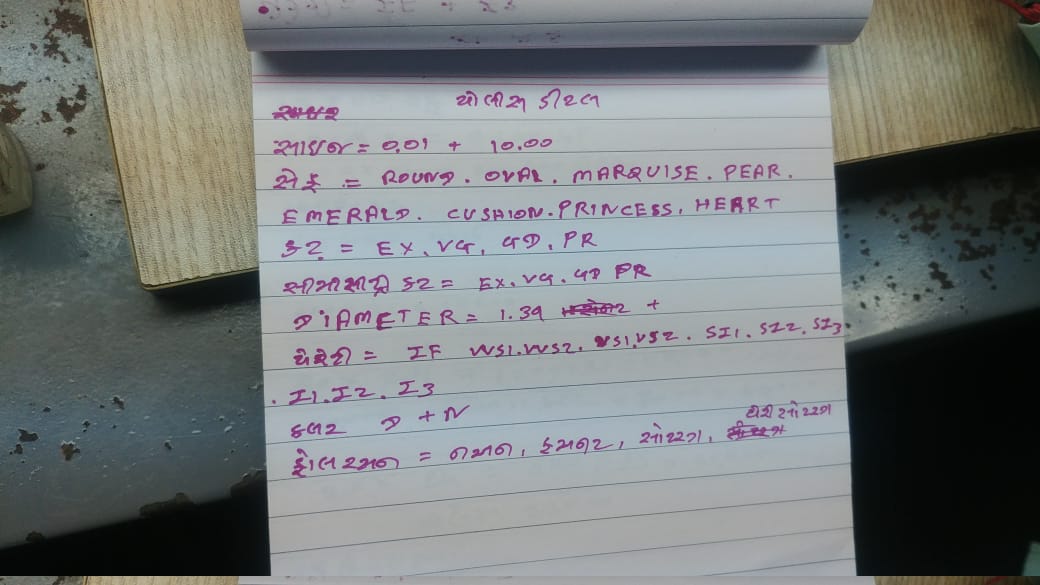 પોલીસ ડીટેલ
સાઇજ = 0.01 + 10.00
સેફ = ROUND. OVAL. MARQUISE. PEAR.
EMERALD. CUSHION. PRINCESS. HEART
કટ = EX. VG. GD. PR
સીમાસાટ્રી કટ = EX. VG. GD PR
DIAMETER = 1.39 +
પેરેટી = IF VVS1. VVS2. VS1. VS2. SI1. SI2. SI3
. I1. I2. I3
કલર D + N
ફોલરસઅન = નઅન, ફઅનટ, સોરરંગ, વેરી સોરરંગ